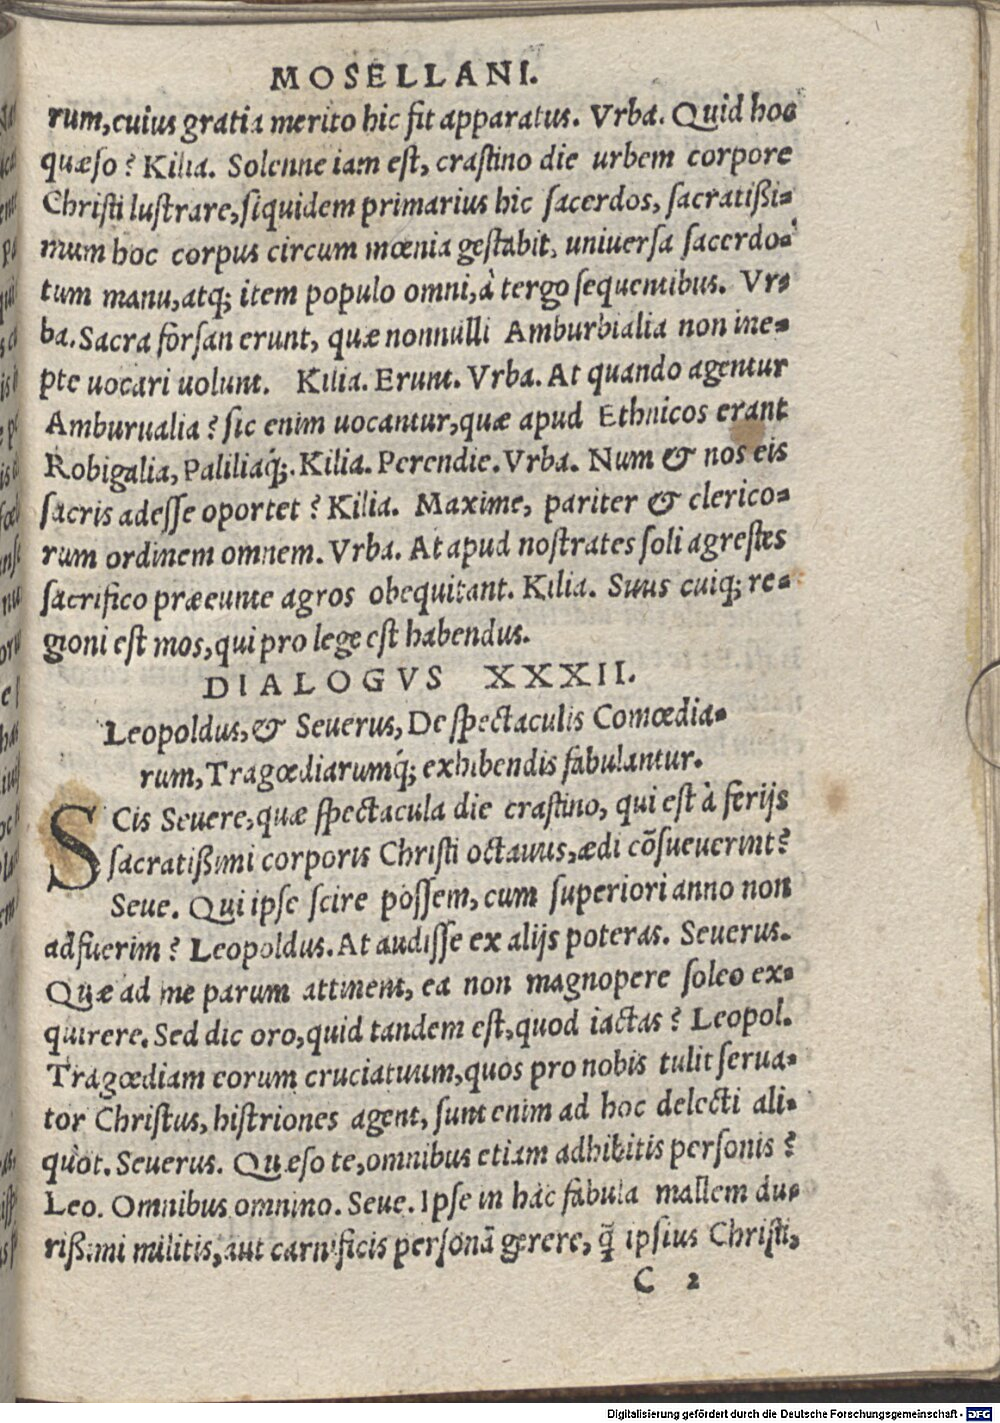 MOSELLANI.
rum, cuius gratia merito hic fit apparatus. Vrba. Quid hoc
quæso? Kilia. Solenne iam est, crastino die urbem corpore
Christi lustrare, siquidem primarius hic sacerdos, sacratißi-
mum hoc corpus circum mœnia gestabit, uniuersa sacerdo-
tum manu, atq; item populo omni, à tergo sequentibus. Vr-
ba. Sacra forsan erunt, quæ nonnulli Amburbialia non ine-
pte uocari uolunt. Kilia. Erunt. Vrba. At quando agentur
Amburualia? sic enim uocantur, quæ apud Ethnicos erant
Robigalia, Paliliaq́;. Kilia. Perendie. Vrba. Num & nos eis
sacris adesse oportet? Kilia. Maxime, pariter & clerico-
rum ordinem omnem. Vrba. At apud nostrates soli agrestes
sacrifico præeunte agros obequitant. Kilia. Suus cuiq; re-
gioni est mos, qui pro lege est habendus.
DIALOGVS XXXII.
Leopoldus, & Seuerus, De spectaculis Comœdia-
rum, Tragœdiarumq́; exhibendis fabulantur.
SCis Seuere, quæ spectacula die crastino, qui est à ferijs
sacratißimi corporis Christi octauus, ædi cõsueuerint?
Seue. Qui ipse scire possem, cum superiori anno non
adfuerim? Leopoldus. At audisse ex alijs poteras. Seuerus.
Quæ ad me parum attinent, ea non magnopere soleo ex-
quirere. Sed dic oro, quid tandem est, quod iactas? Leopol.
Tragœdiam eorum cruciatuum, quos pro nobis tulit serua-
tor Christus, histriones agent, sunt enim ad hoc delecti ali-
quòt. Seuerus. Quæso te, omnibus etiam adhibitis personis?
Leo. Omnibus omnino. Seue. Ipse in hac fabula mallem du-
rißimi militis, aut carnificis personã gerere, q̃ ipsius Christi,
C 2
Digitalisierung gefördert durch die Deutsche Forschungsgemeinschaft - DFG